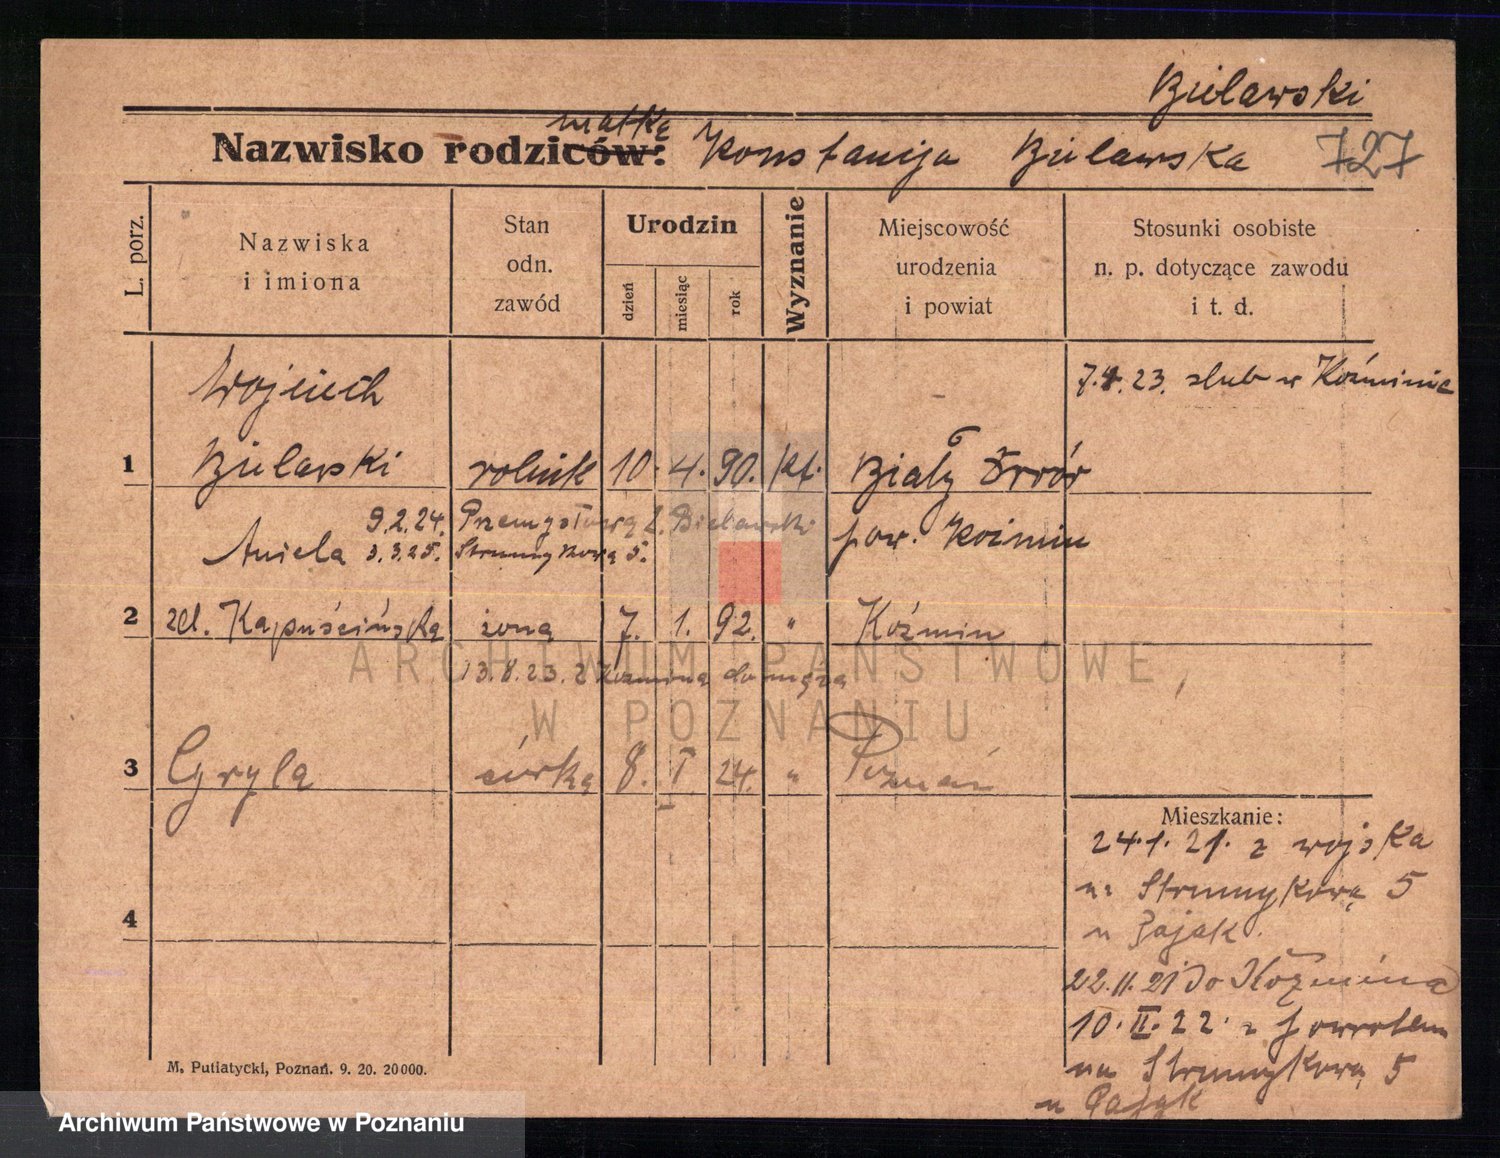 Bielawski
matka
Nazwisko rodziców: Konstancja Bielawska 727
L. porz.
Nazwiska
i imiona
Stan
odn.
zawód
Urodzin
dzień
miesiąc
rok
Wyznanie
Miejscowość
urodzenia
i powiat
Stosunki osobiste
n. p. dotyczące zawodu
i t. d.
Wojciech
7.8.23. slub w Koźminie
1 Bielawski rolnik 10. 4. 90. kt. Biały Dwór
9.2.24. Przemysłowa Bielawski pow. Koźmin
Aniela 3.3.25. Strumykowa 5.
2 zd. Kapuścińska żona 7. 1. 92. " Koźmin
13.8.23. z Koźmina do męża
ARCHIWUM PAŃSTWOWE
W POZNANIU
3 Cyryla córka 8. I 24. " Poznań
Mieszkanie:
24.1.21. z wojska
na Strumykową 5
u Pająk.
4
22.11.21 do Koźmina
10.II.22. z powrotem
na Strumykową 5
u Pająk
M. Putiatycki, Poznań. 9. 20. 20000.
Archiwum Państwowe w Poznaniu